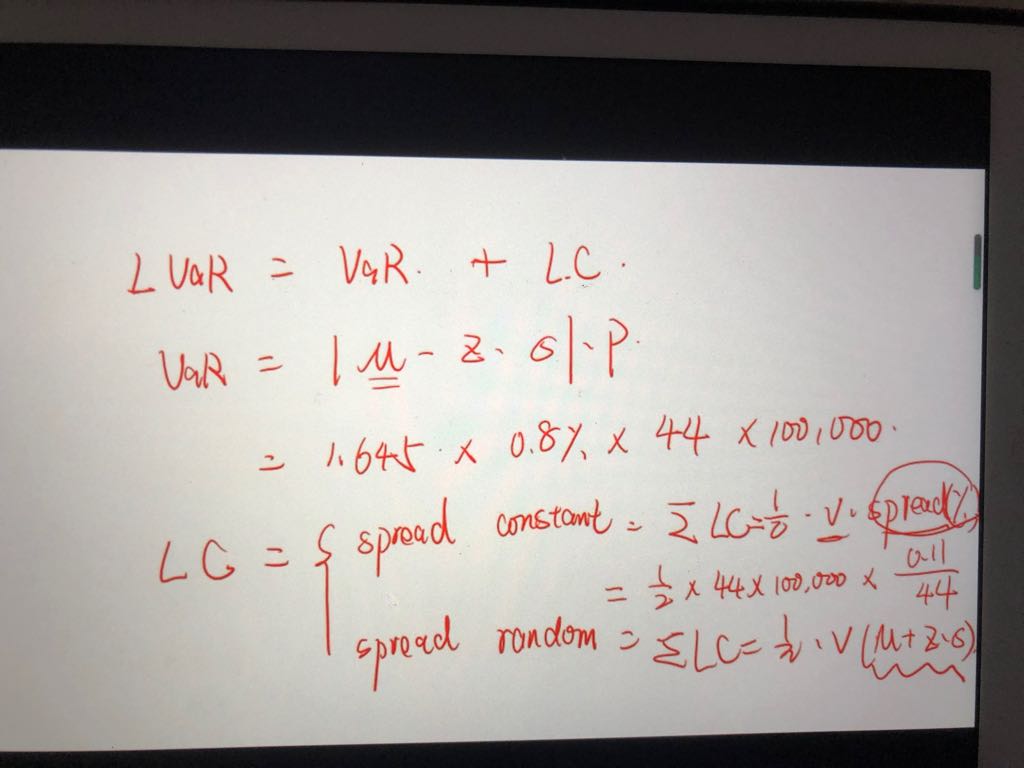 LVaR = VaR. + LC.
VaR = |μ - z. σ|.P.
= 1.645 × 0.8% × 44 × 100,000.
LC = { spread constant = Σ LC = 1/2 . V. spread(%)
= 1/2 × 44 × 100,000 × 0.11/44
spread random = Σ LC = 1/2 . V (μ + z.σ)